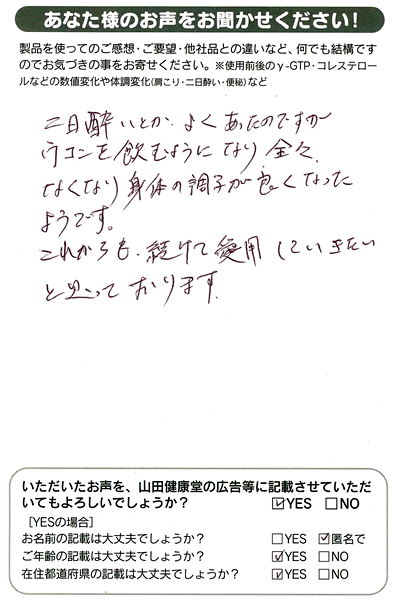 あなた様のお声をお聞かせください!
製品を使ってのご感想・ご要望・他社品との違いなど、何でも結構です
のでお気づきの事をお寄せください。※使用前後のγ-GTP・コレステロー
ルなどの数値変化や体調変化(肩こり・二日酔い・便秘)など
二日酔いとか、よくあったのですが
ウコンを飲むようになり全々、
なくなり身体の調子が良くなった
ようです。
これからも、続けて愛用していきたい
と思っております。
いただいたお声を、山田健康堂の広告等に記載させていただ
いてもよろしいでしょうか? ☑YES □NO
[YESの場合]
お名前の記載は大丈夫でしょうか? □YES ☑匿名で
ご年齢の記載は大丈夫でしょうか? ☑YES □NO
在住都道府県の記載は大丈夫でしょうか? ☑YES □NO